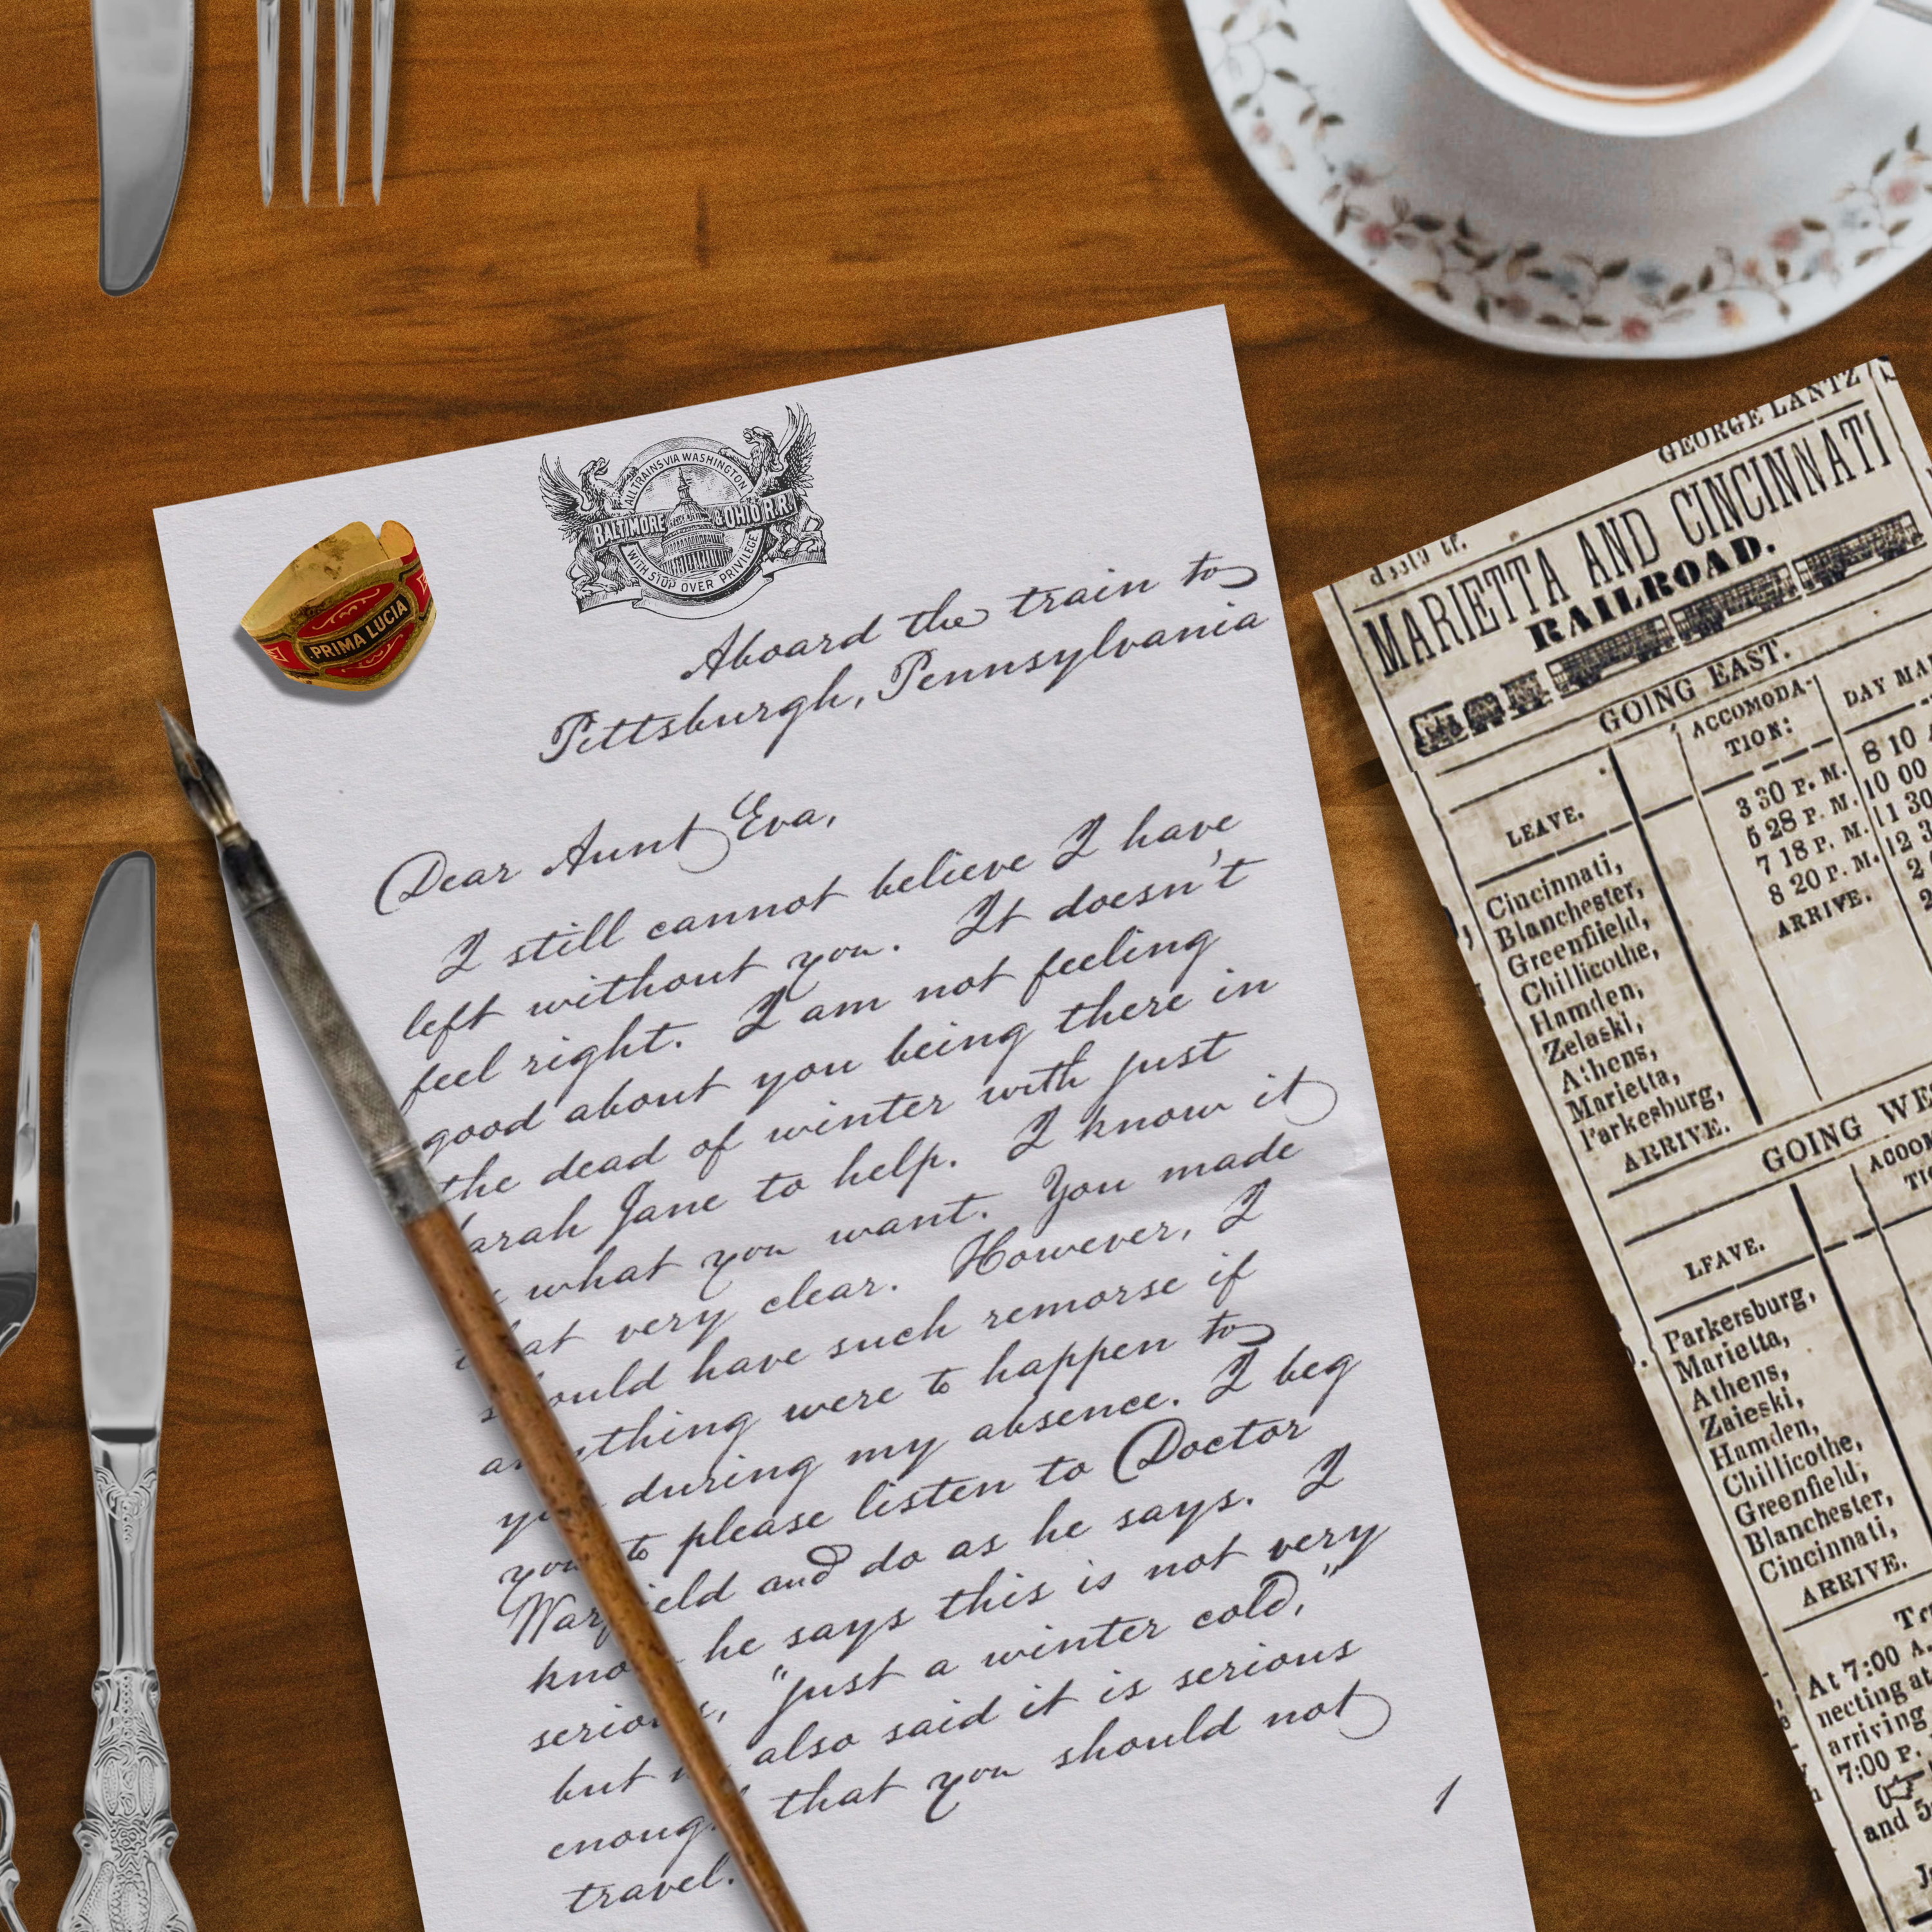 ALL TRAINS VIA WASHINGTON
BALTIMORE & OHIO R.R.
WITH STOP OVER PRIVILEGE
PRIMA LUCIA
Aboard the train to
Pittsburgh, Pennsylvania
Dear Aunt Eva,
I still cannot believe I have
left without you. It doesn't
feel right. I am not feeling
good about you being there in
the dead of winter with just
arah Jane to help. I know it
what you want. You made
at very clear. However, I
ould have such remorse if
anything were to happen to
you during my absence. I beg
you to please listen to Doctor
Warfield and do as he says. I
know he says this is not very
serious, "just a winter cold,"
but also said it is serious
enough that you should not
travel.
1
GEORGE LANTZ
MARIETTA AND CINCINNATI
RAILROAD.
GOING EAST.
LEAVE.
ACCOMODA-
TION:
DAY MA
Cincinnati, 3 30 P. M. 8 10
Blanchester, 5 28 P. M. 10 00
Greenfield, 7 18 P. M. 11 30
Chillicothe, 8 20 P. M. 12 3
Hamden, ARRIVE. 2
Zelaski, 2
Athens,
Marietta,
Parkesburg,
ARRIVE.
GOING WE
LFAVE.
ACOOM
TI
Parkersburg,
Marietta,
Athens,
Zaieski,
Hamden,
Chillicothe,
Greenfield,
Blanchester,
Cincinnati,
ARRIVE.
At 7:00 A.
necting at
arriving
7:00 P.
and 5